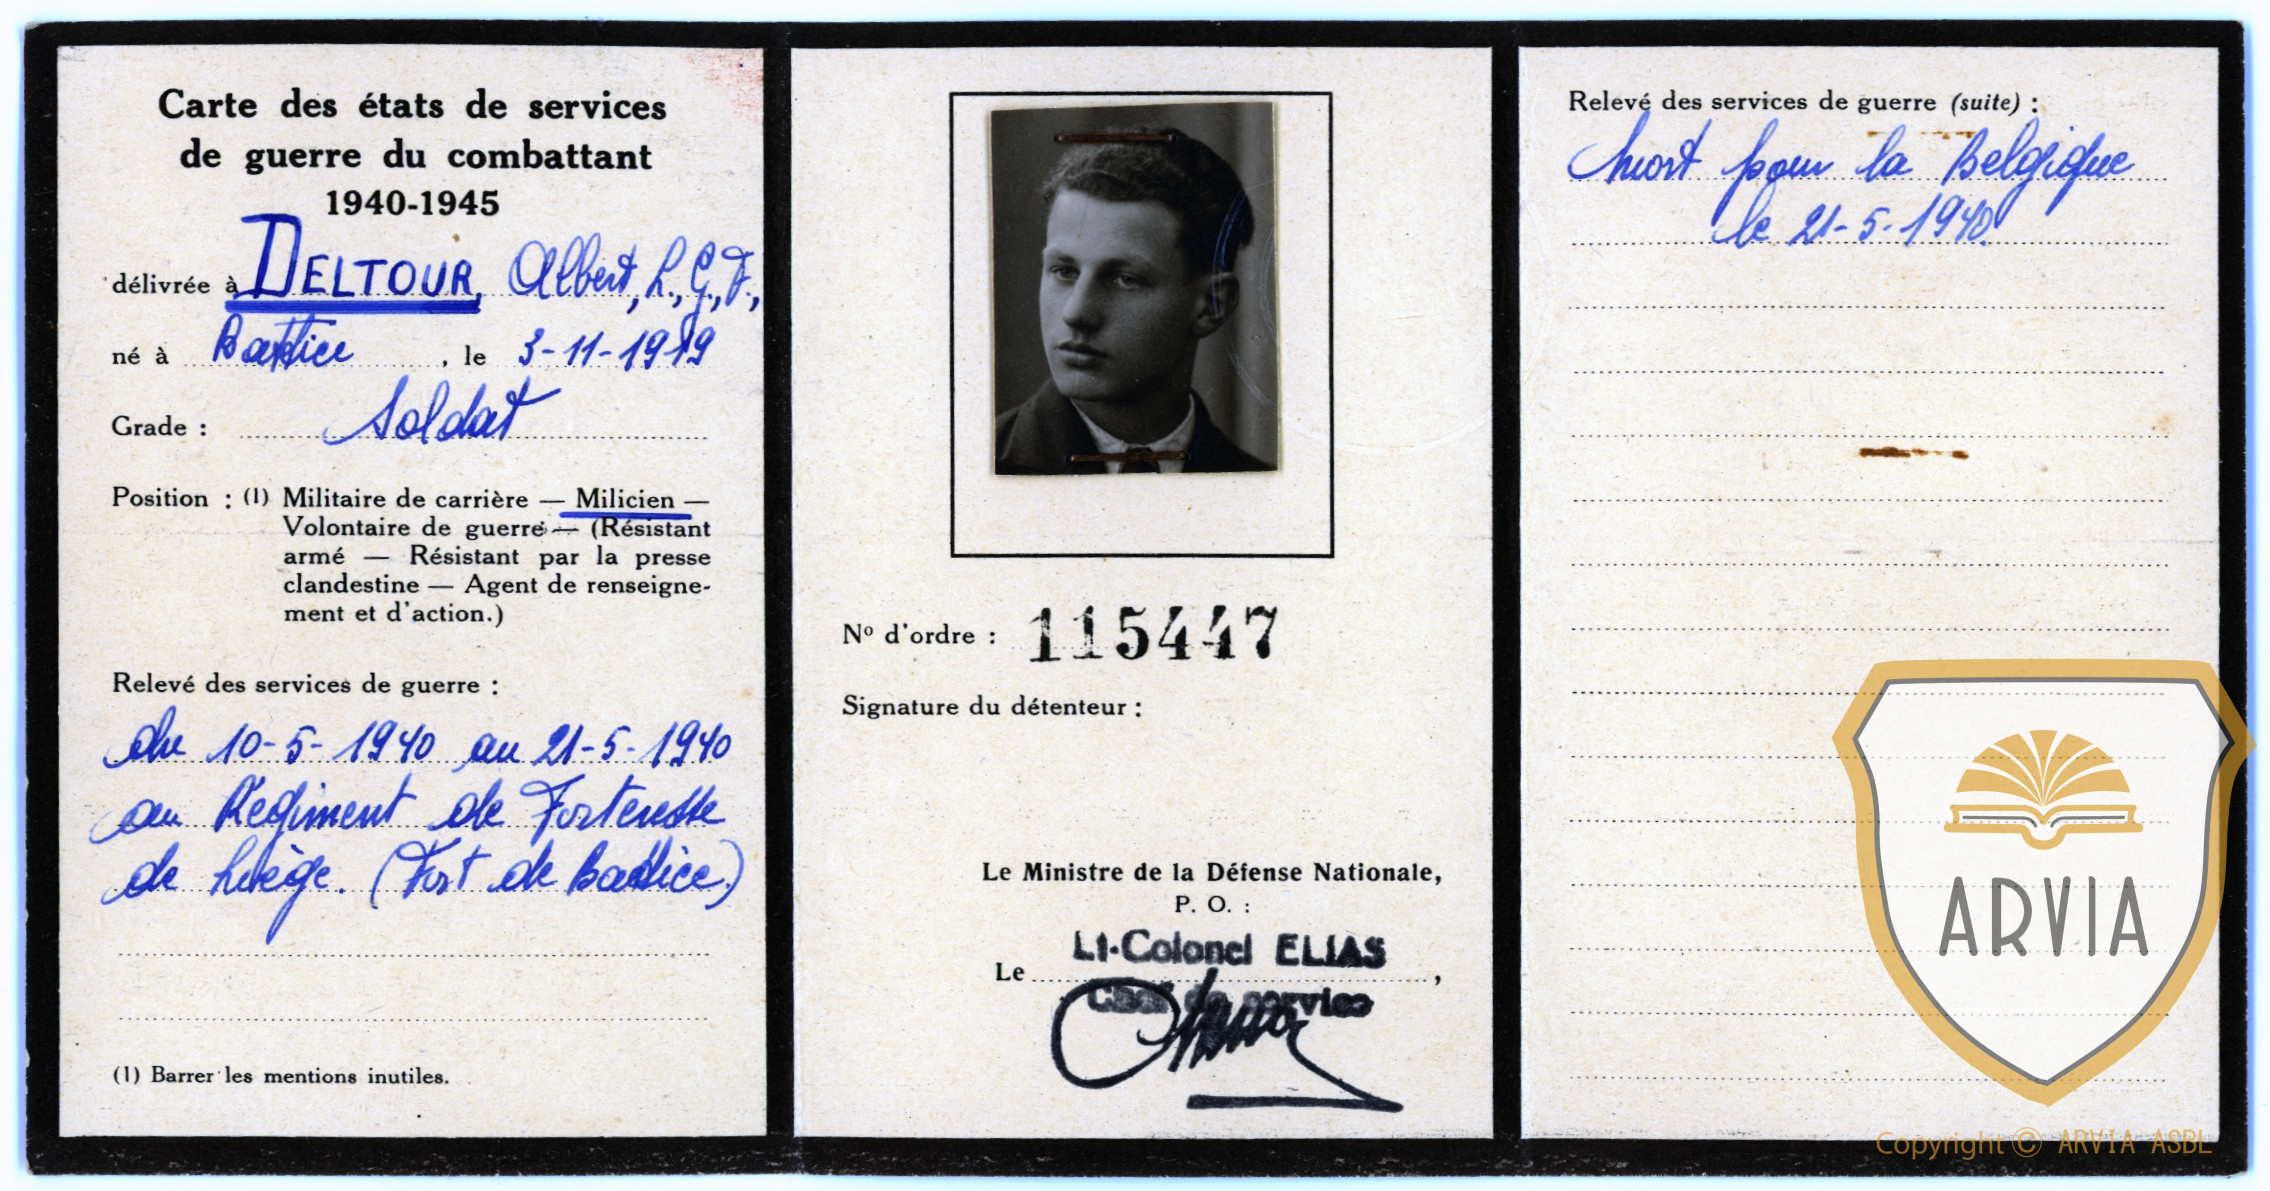 Carte des états de services
de guerre du combattant
1940-1945
délivrée à DELTOUR, Albert, L., G., F.,
né à Battice, le 3-11-1919
Grade : Soldat
Position : (1) Militaire de carrière — Milicien —
Volontaire de guerre — (Résistant
armé — Résistant par la presse
clandestine — Agent de renseigne-
ment et d'action.)
Relevé des services de guerre :
du 10-5-1940 au 21-5-1940
au Régiment de Forteresse
de Liège. (Fort de Battice)
(1) Barrer les mentions inutiles.
Nº d'ordre : 115447
Signature du détenteur :
Le Ministre de la Défense Nationale,
P. O. :
Lt-Colonel ELIAS
Le ,
Chef de service
Relevé des services de guerre (suite) :
Mort pour la Belgique
le 21-5-1940
ARVIA
Copyright © ARVIA ASBL